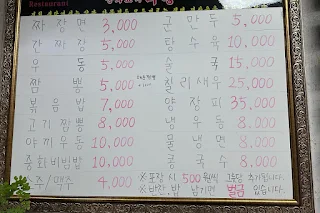 Restaurant
짜장면 3,000
간짜장 5,000
우동 5,000
짬뽕 5,000
볶음밥 7,000
고기짬뽕 8,000
야끼우동 10,000
중화비빔밥 10,000
소주/맥주 4,000
군만두 5,000
탕수육 10,000
술국 15,000
칠리새우 25,000
양장피 35,000
냉우동 8,000
물냉면 8,000
콩국수 8,000
※포장시 500원씩 추가됩니다.
※반찬,밥 남기면 벌금 없습니다.